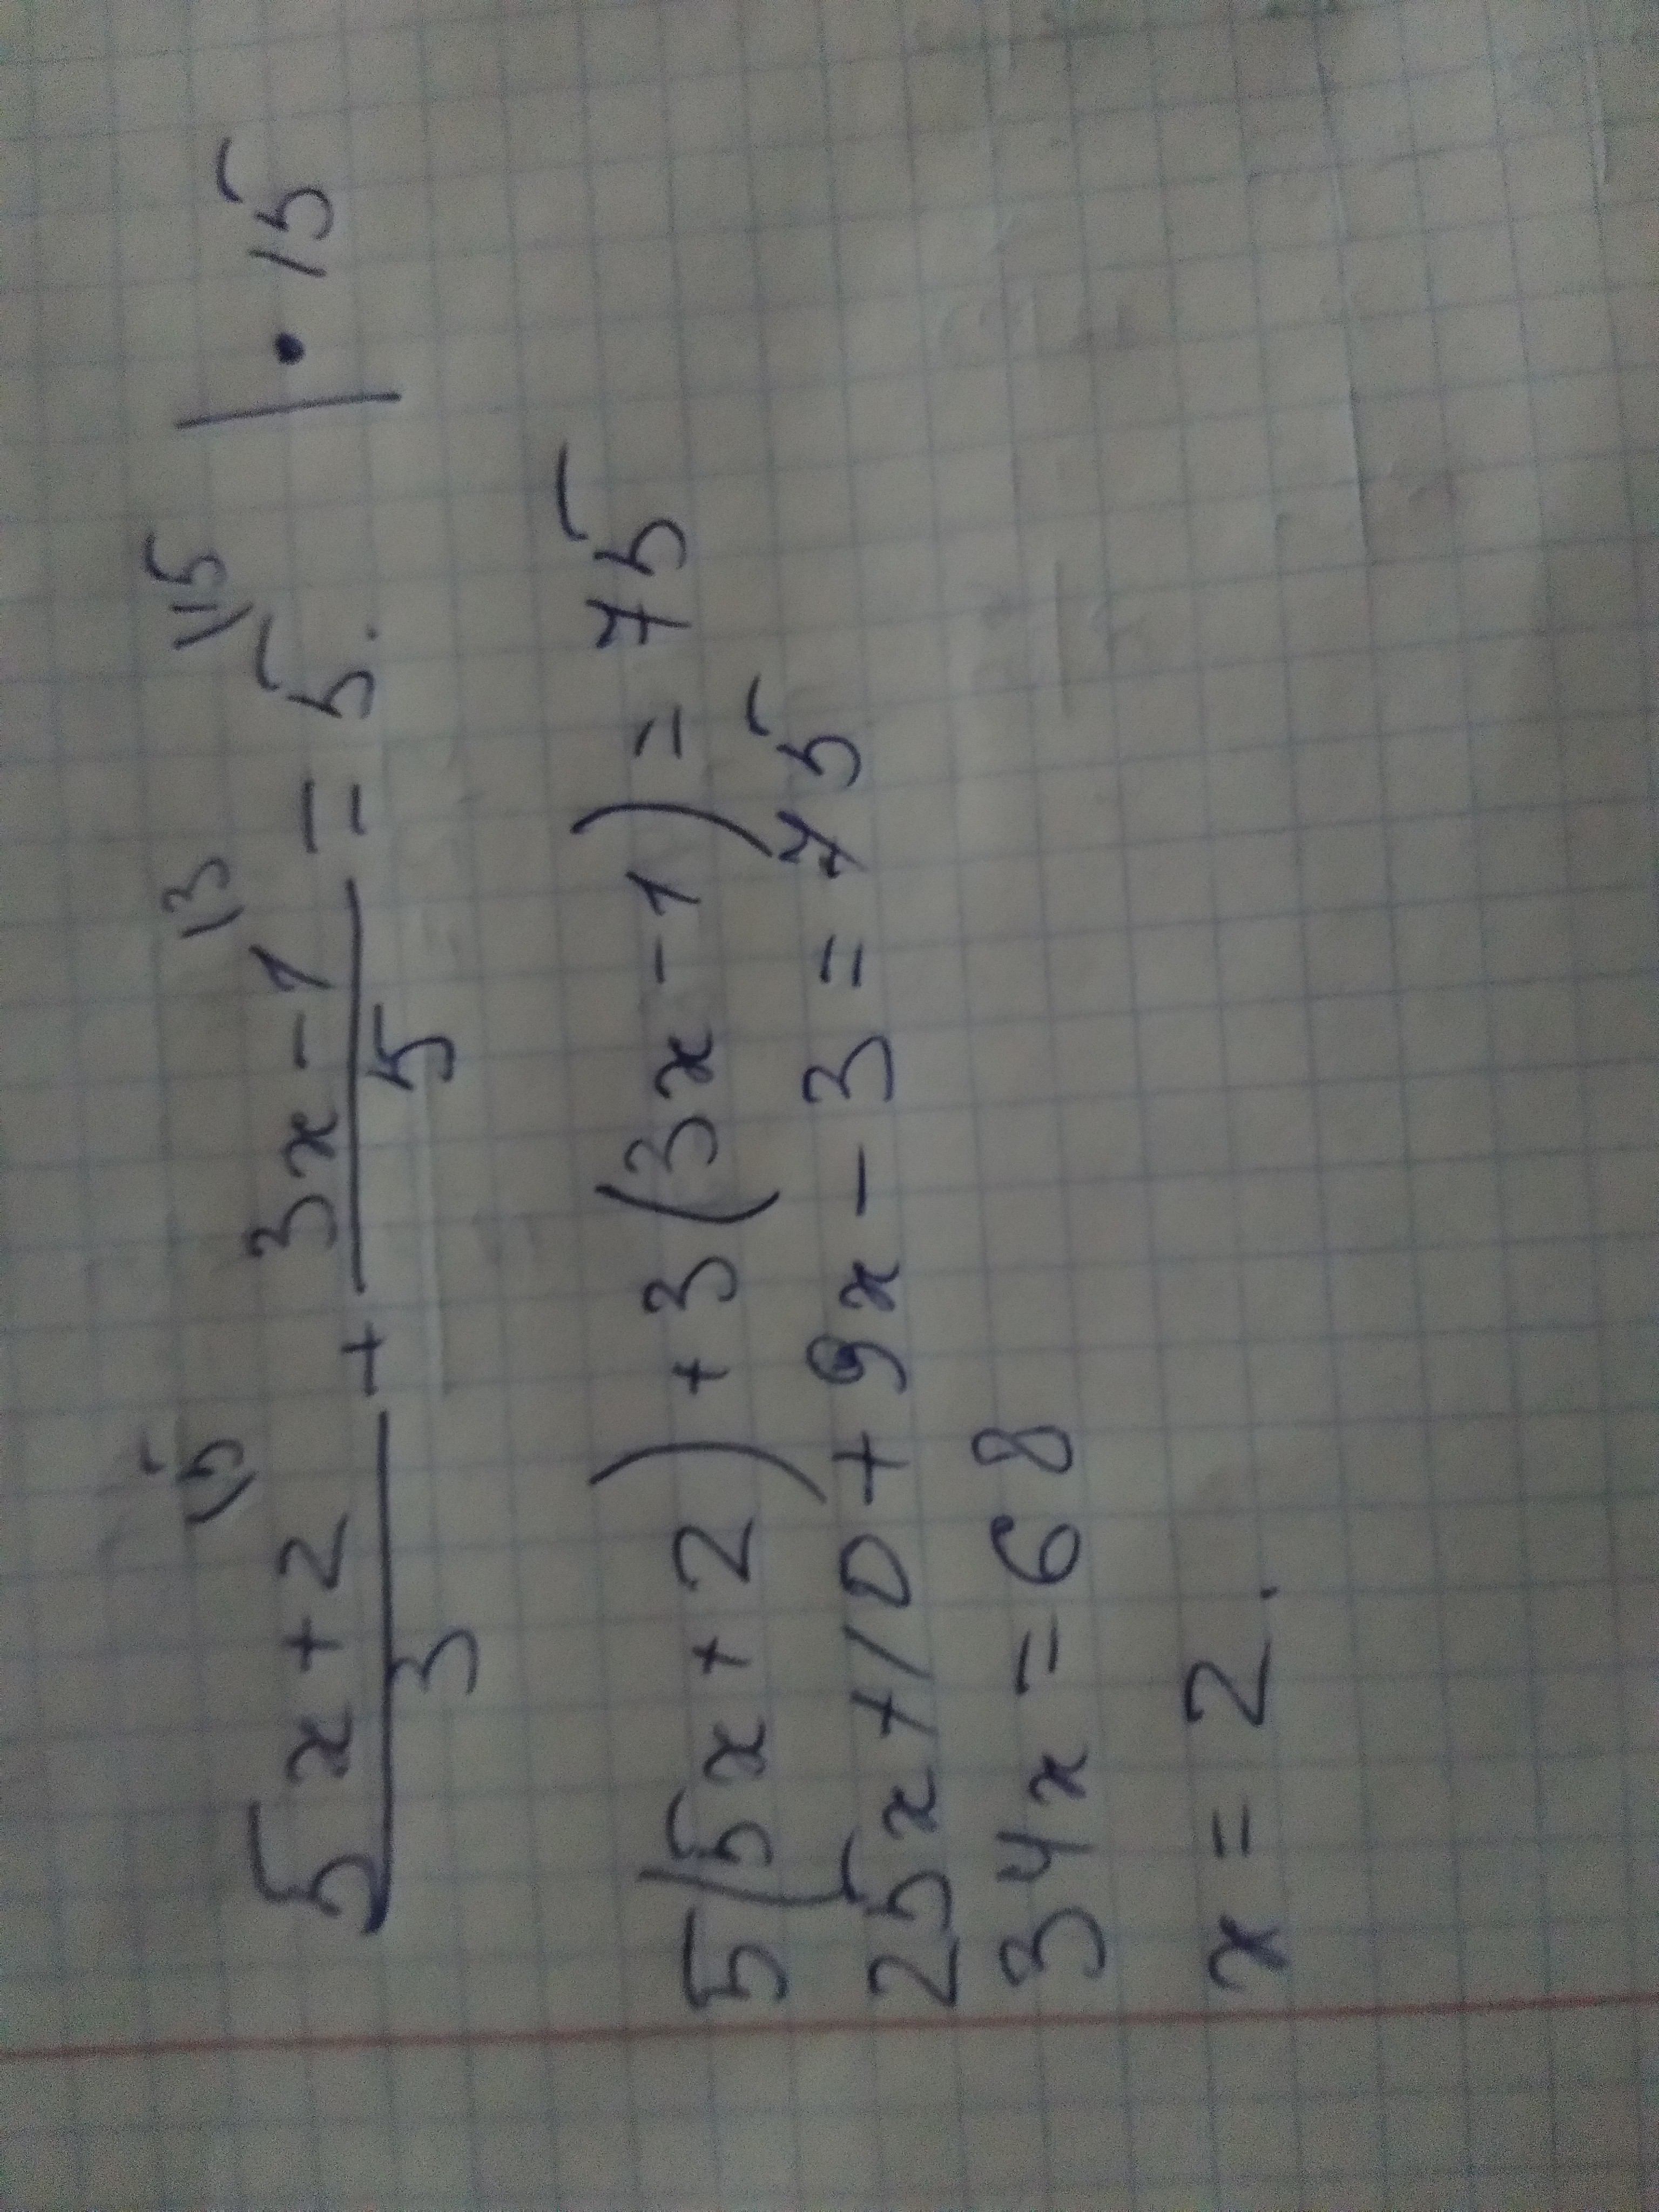 (5x+2)/3 \5 + (3x-1)/5 \3 = 5. \15 | • 15
5(5x+2)+3(3x-1)=75
25x+10+9x-3=75
34x=68
x=2.